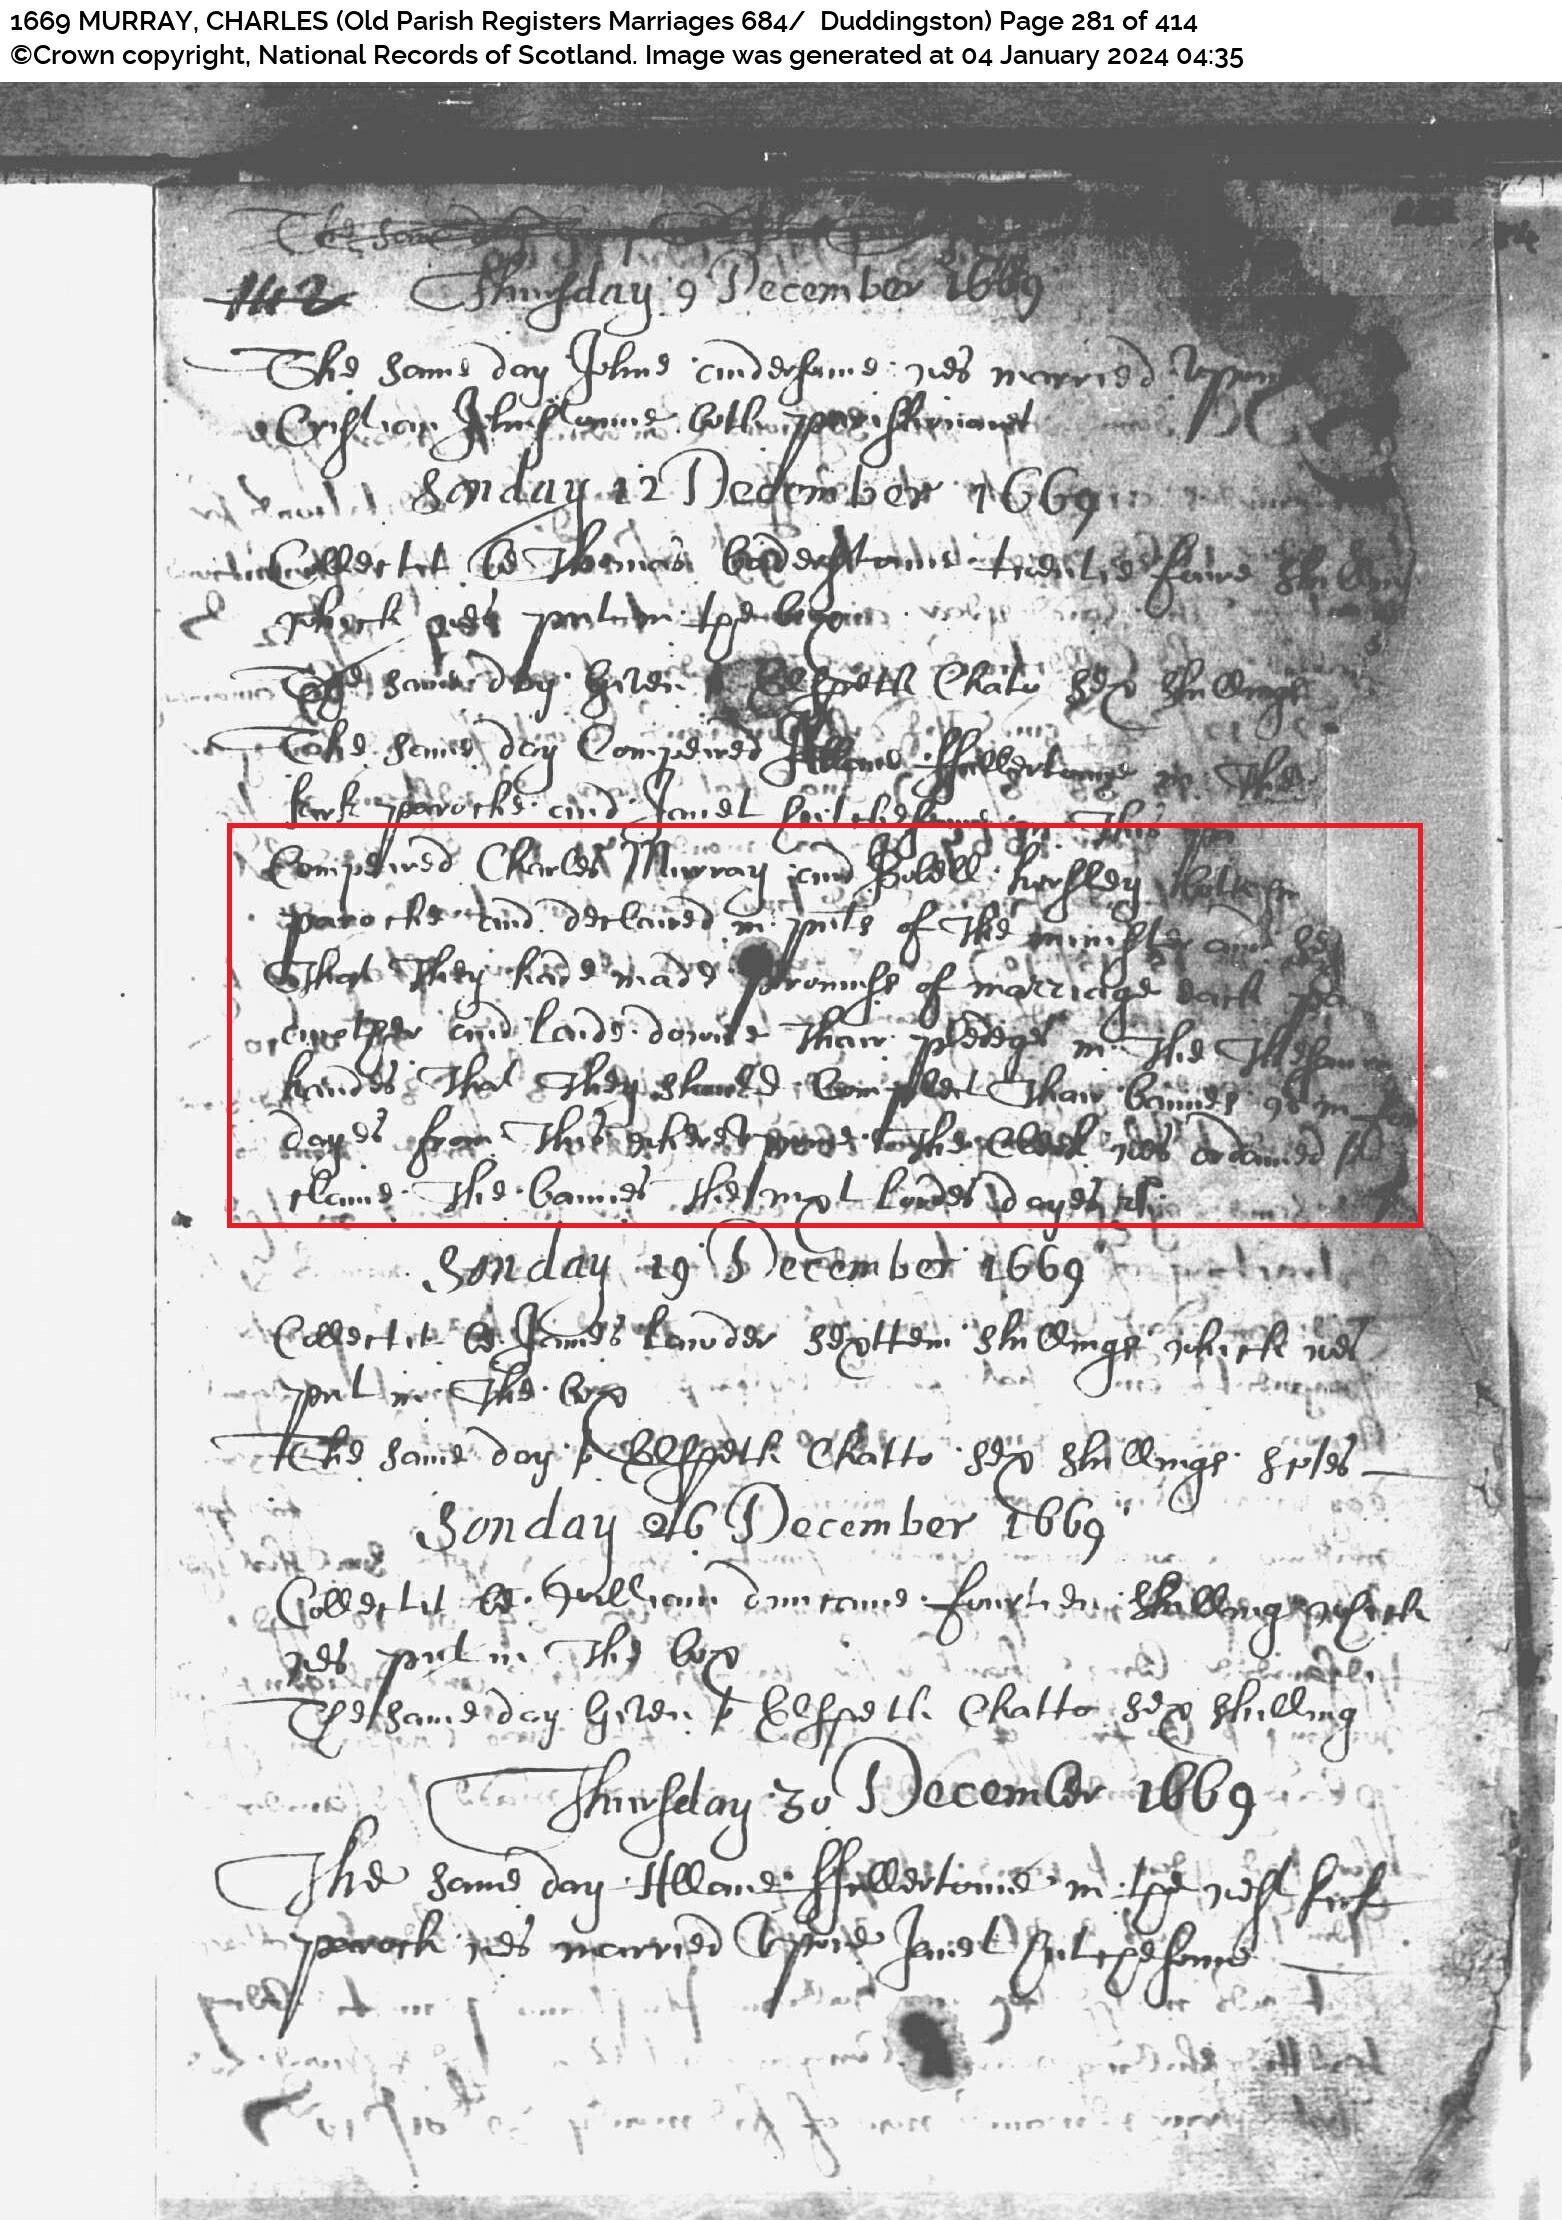 1669 MURRAY, CHARLES (Old Parish Registers Marriages 684/ Duddingston) Page 281 of 414
©Crown copyright, National Records of Scotland. Image was generated at 04 January 2024 04:35
142 Thursday 9 December 1669
The same day Johne andersone wes married upon
Cristian Johnstoune both parishionaris
Sonday 12 December 1669
Collectit be Thomas baderstoune tuentie foure shilling
which wes put in the box
The same day given Elspeth Chato sex shillings
The same day Compeired Allane ffullertoune in the
kirk paroche and Janet in this
Compeired Charles Murray and Isobell hershey both in
paroche and declaired in pnts of the minister and
That They hade made promise of marriage each
another and laide downe thair pledges in the
handes that they should compleet thair bannes
dayes from this the Clerk wes ordained
clame the bannes the next Lordes dayes
Sonday 19 December 1669
Collectit be James Lauder sextten shillings which wes
put in the box
The same day Elspeth Chatto sex shillings
Sonday 26 December 1669
Collectit be William duncane fourteen shilling which
wes put in the box
The same day given Elspeth Chatto sex shilling
Thursday 30 December 1669
The same day Allane ffullertoune in the west kirk
paroch wes married upone Janet